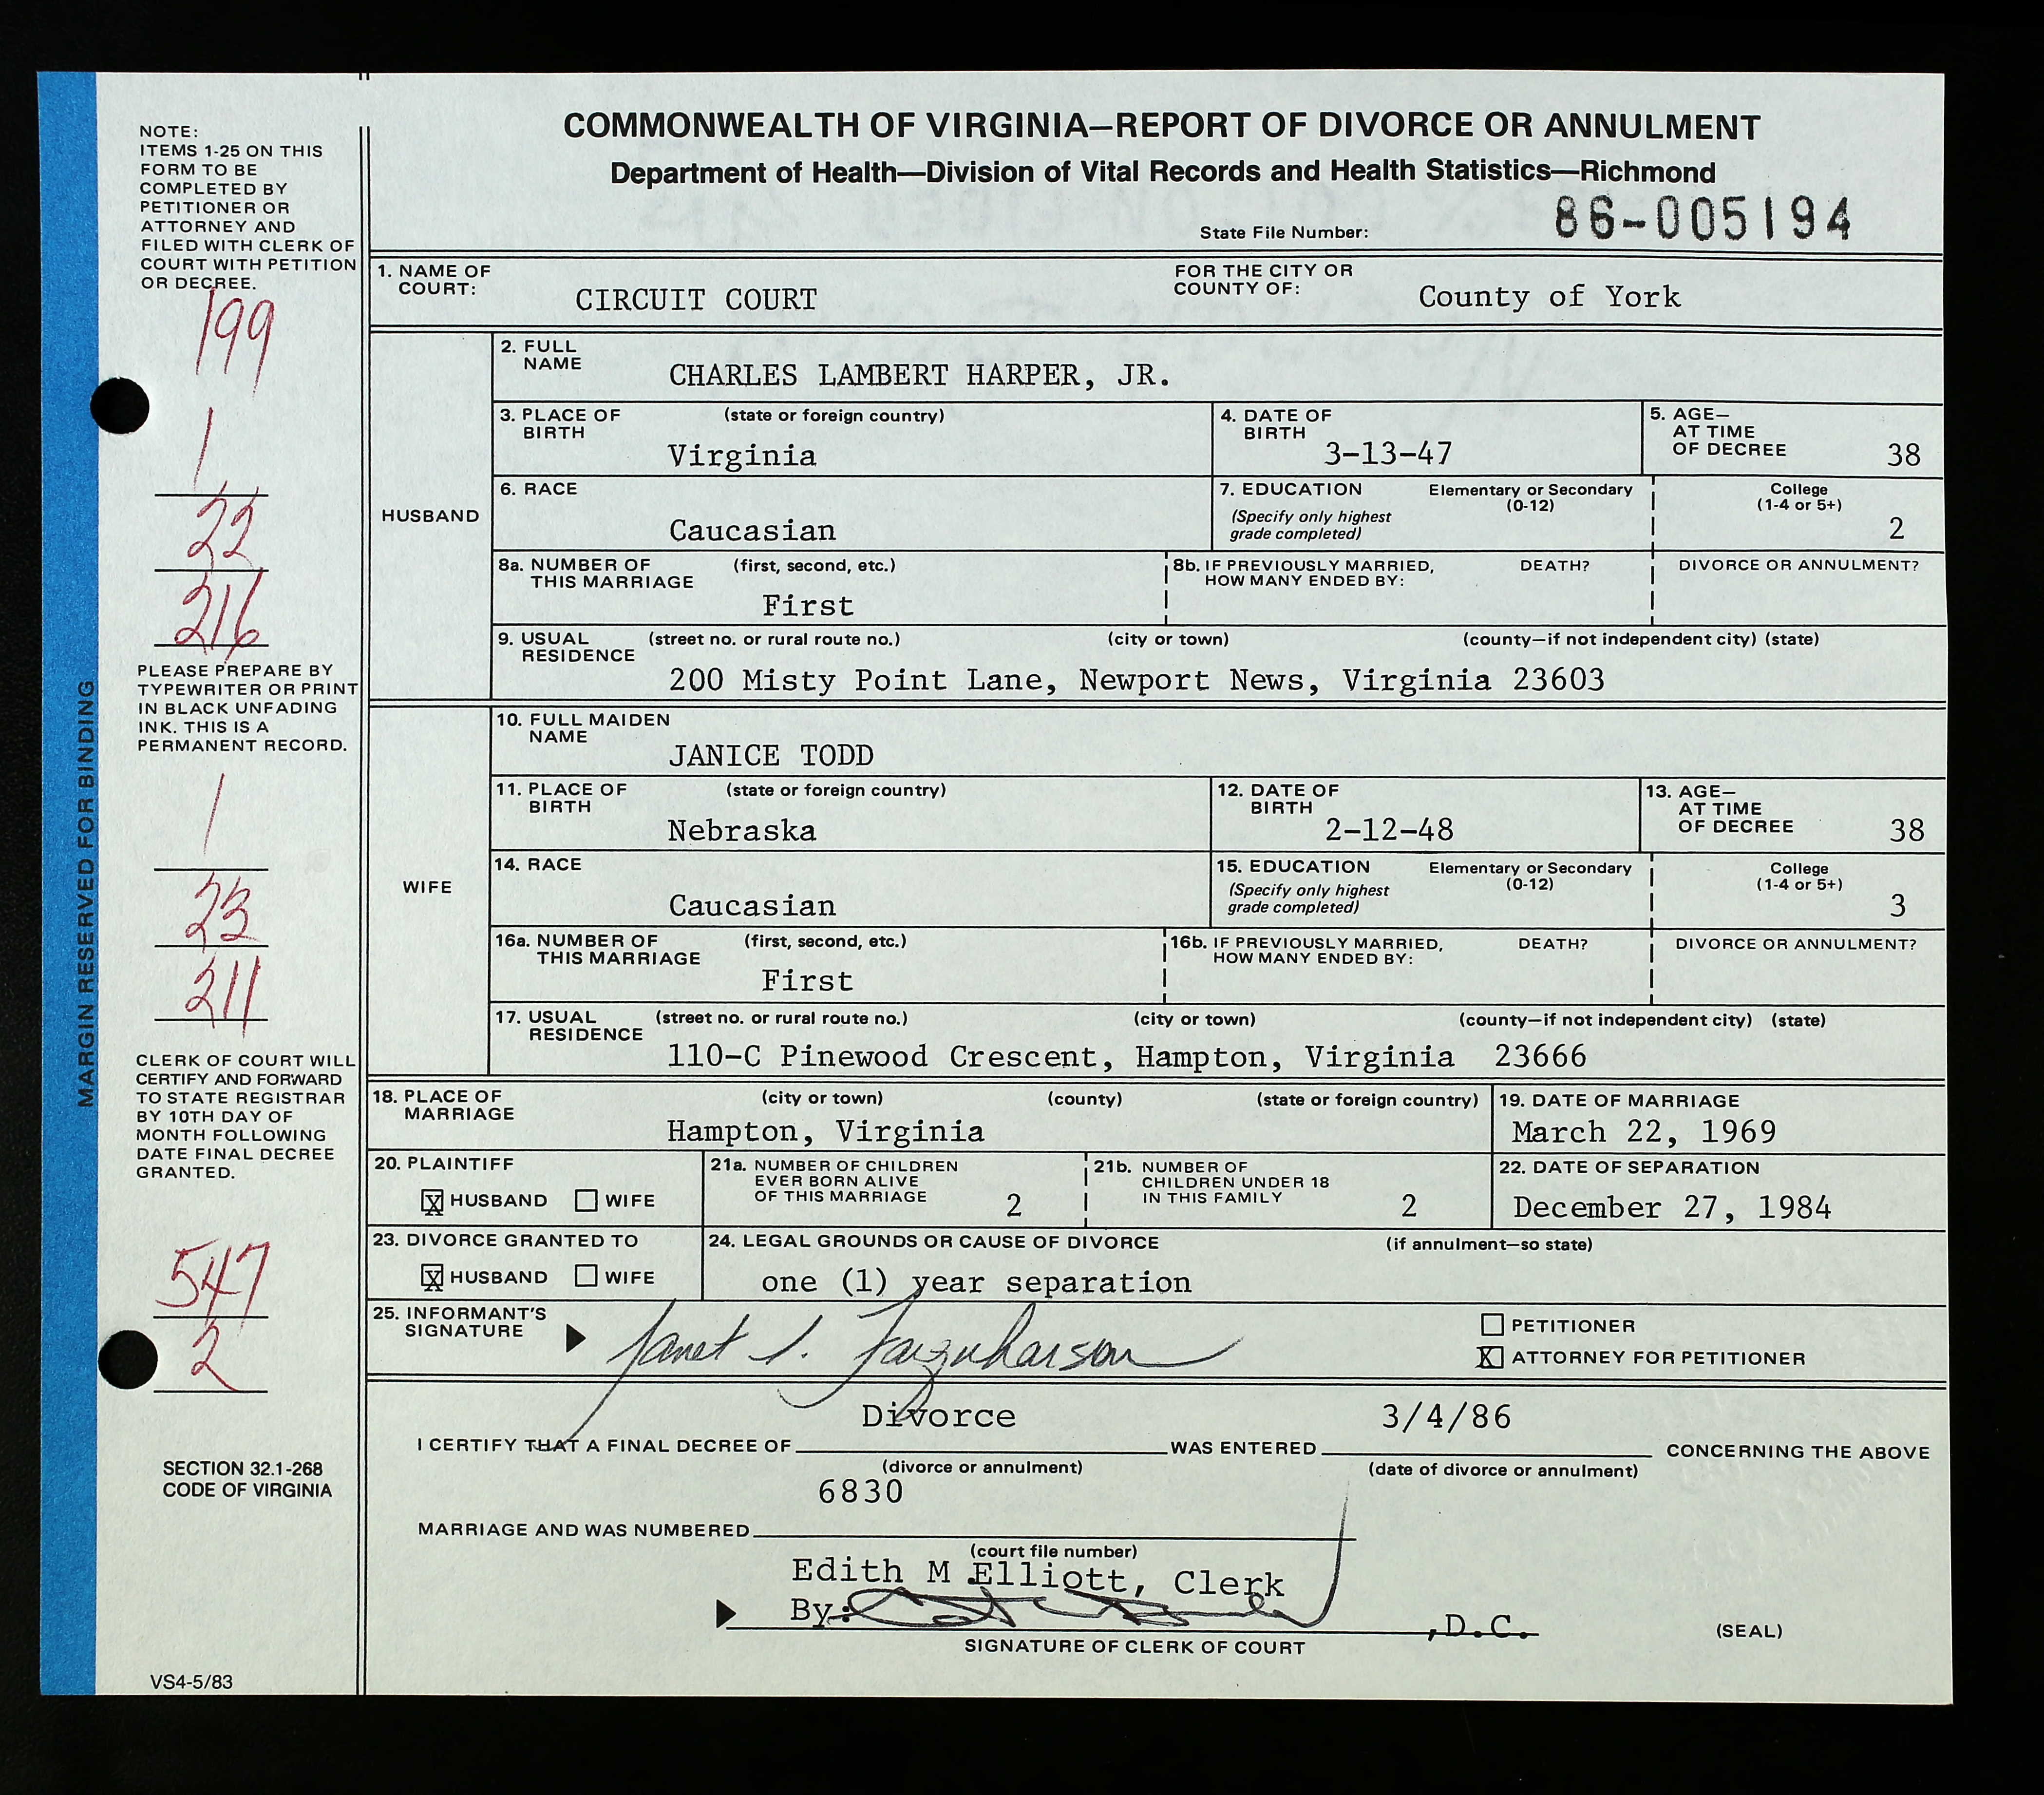 COMMONWEALTH OF VIRGINIA—REPORT OF DIVORCE OR ANNULMENT
Department of Health—Division of Vital Records and Health Statistics—Richmond
State File Number: 86-005194
NOTE:
ITEMS 1-25 ON THIS
FORM TO BE
COMPLETED BY
PETITIONER OR
ATTORNEY AND
FILED WITH CLERK OF
COURT WITH PETITION
OR DECREE.
199
1
22
216
PLEASE PREPARE BY
TYPEWRITER OR PRINT
IN BLACK UNFADING
INK. THIS IS A
PERMANENT RECORD.
1
23
211
CLERK OF COURT WILL
CERTIFY AND FORWARD
TO STATE REGISTRAR
BY 10TH DAY OF
MONTH FOLLOWING
DATE FINAL DECREE
GRANTED.
547
2
SECTION 32.1-268
CODE OF VIRGINIA
VS4-5/83
MARGIN RESERVED FOR BINDING
1. NAME OF
COURT: CIRCUIT COURT
FOR THE CITY OR
COUNTY OF: County of York
HUSBAND
2. FULL
NAME CHARLES LAMBERT HARPER, JR.
3. PLACE OF (state or foreign country)
BIRTH Virginia
4. DATE OF
BIRTH 3-13-47
5. AGE—
AT TIME
OF DECREE 38
6. RACE
Caucasian
7. EDUCATION Elementary or Secondary College
(Specify only highest (0-12) (1-4 or 5+)
grade completed) 2
8a. NUMBER OF (first, second, etc.)
THIS MARRIAGE First
8b. IF PREVIOUSLY MARRIED, DEATH? DIVORCE OR ANNULMENT?
HOW MANY ENDED BY:
9. USUAL (street no. or rural route no.) (city or town) (county—if not independent city) (state)
RESIDENCE 200 Misty Point Lane, Newport News, Virginia 23603
WIFE
10. FULL MAIDEN
NAME JANICE TODD
11. PLACE OF (state or foreign country)
BIRTH Nebraska
12. DATE OF
BIRTH 2-12-48
13. AGE—
AT TIME
OF DECREE 38
14. RACE
Caucasian
15. EDUCATION Elementary or Secondary College
(Specify only highest (0-12) (1-4 or 5+)
grade completed) 3
16a. NUMBER OF (first, second, etc.)
THIS MARRIAGE First
16b. IF PREVIOUSLY MARRIED, DEATH? DIVORCE OR ANNULMENT?
HOW MANY ENDED BY:
17. USUAL (street no. or rural route no.) (city or town) (county—if not independent city) (state)
RESIDENCE 110-C Pinewood Crescent, Hampton, Virginia 23666
18. PLACE OF (city or town) (county) (state or foreign country)
MARRIAGE Hampton, Virginia
19. DATE OF MARRIAGE
March 22, 1969
20. PLAINTIFF
X HUSBAND WIFE
21a. NUMBER OF CHILDREN
EVER BORN ALIVE
OF THIS MARRIAGE 2
21b. NUMBER OF
CHILDREN UNDER 18
IN THIS FAMILY 2
22. DATE OF SEPARATION
December 27, 1984
23. DIVORCE GRANTED TO
X HUSBAND WIFE
24. LEGAL GROUNDS OR CAUSE OF DIVORCE (if annulment—so state)
one (1) year separation
25. INFORMANT'S
SIGNATURE Janet
PETITIONER
X ATTORNEY FOR PETITIONER
Divorce 3/4/86
I CERTIFY THAT A FINAL DECREE OF WAS ENTERED CONCERNING THE ABOVE
(divorce or annulment) (date of divorce or annulment)
6830
MARRIAGE AND WAS NUMBERED
(court file number)
Edith M Elliott, Clerk
By: ,D.C.
SIGNATURE OF CLERK OF COURT
(SEAL)